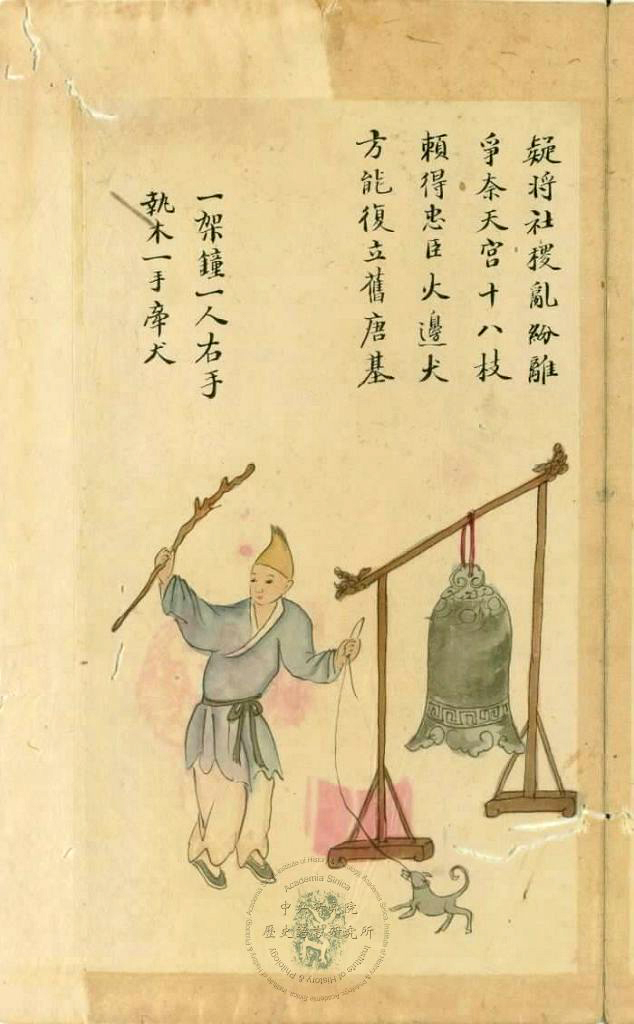 疑将社稷亂紛離
爭奈天宮十八枝
賴得忠臣火邊犬
方能復立舊唐基
一架鐘一人右手
執木一手牽犬
Academia Sinica
中央研究院
歷史語言研究所
Institute of History & Philology